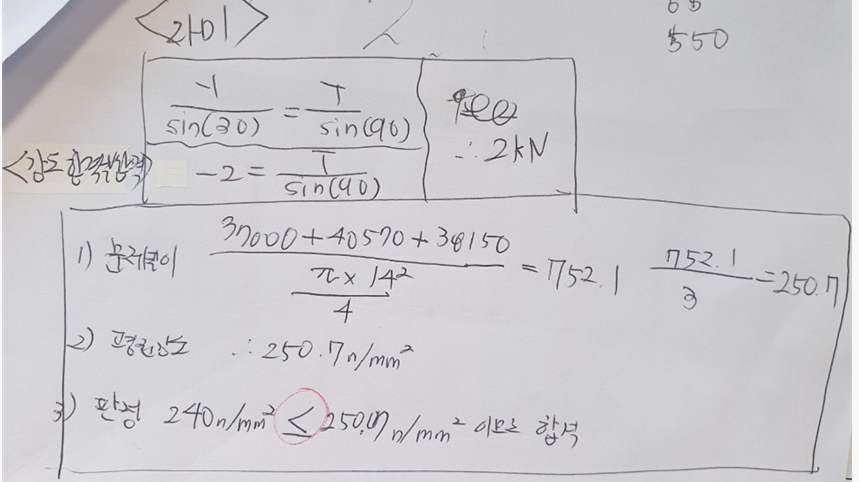 65
$50
<라미>
-1/sin(30) = T/sin(90)
∴ 2kN
<강도 합격 >
-2 = T/sin(90)
1) 문제풀이 (37000+40570+38150)/(π×14²/4) = 752.1 752.1/3 = 250.7
2) 평균강도 ∴ 250.7n/mm²
3) 판정 240n/mm² ≤ 250.7n/mm² 이므로 합격